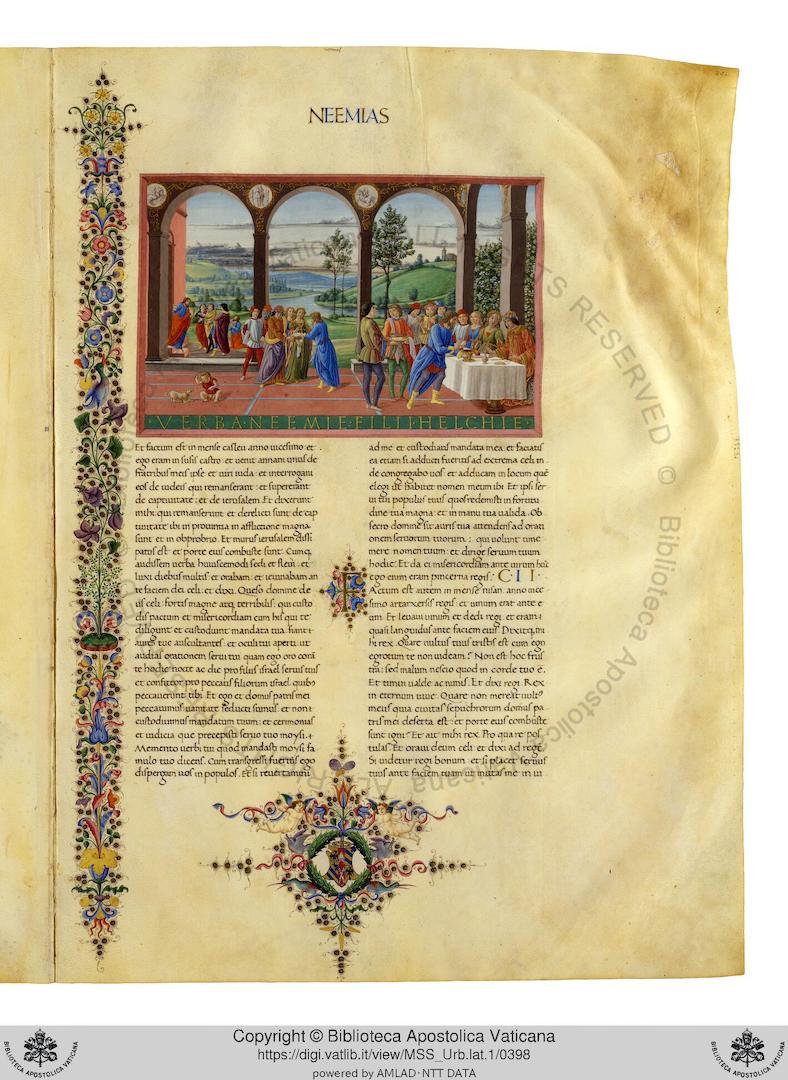 NEEMIAS
VERBA·NEEMIE·FILII·HELCHIE·
Et factum est in mense casleu anno uicesimo et
ego eram in susis castro: et uenit annani unus de
fratribus meis ipse et uiri iuda: et interrogaui
eos de iudeis qui remanserant: et supererant
de captiuitate: et de ierusalem. Et dixerunt
mihi: qui remanserunt et derelicti sunt de cap
tiuitate ibi in prouintia in afflictione magna
sunt et in obprobrio. Et murus ierusalem dissi
patus est et porte eius combuste sunt. Cumq
audissem uerba huiuscemodi sedi et fleui: et
luxi diebus multis et orabam: et ieiunabam an
te faciem dei celi: et dixi. Queso domine de
us celi: fortis magne atq terribilis: qui custo
dis pactum et misericordiam cum his qui te
diligunt et custodiunt mandata tua: fiant
aures tue auscultantes: et oculi tui aperti ut
audias orationem serui tui quam ego oro corā
te hodie nocte ac die pro filiis israel seruis tuis
et confiteor pro peccatis filiorum israel: quibs
peccauerunt tibi. Et ego et domus patris mei
peccauimus uanitate seducti sumus et non
custodiuimus mandatum tuum: et cerimonias
et iudicia que precepisti seruo tuo moysi.
Memento uerbi tui quod mandasti moysi fa
mulo tuo dicens. Cum transgressi fueritis ego
dispergam uos in populos. Et si reuertamini
ad me: et custodiatis mandata mea: et faciatis
ea etiam si adducti fueritis ad extrema celi in
de congregabo uos: et adducam in locum quē
elegi ut habitet nomen meum ibi. Et ipsi ser
ui tui populus tuus quos redemisti in fortitu
dine tua magna: et in manu tua ualida. Ob
secro domine sit auris tua attendens ad orati
onem seruorum tuorum: qui uolunt time
mere nomen tuum: et dirige seruum tuum
hodie. Et da ei misericordiam ante uirum huc
ego enim eram pincerna regis. C·II·
FActum est autem in mense nisan: anno uice
simo artarxersis regis: et uinum erat ante e
um. Et leuaui uinum et dedi regi: et eram
quasi languidus ante faciem eius. Dixitq mi
hi rex. Quare uultus tuus tristis est cum ego
egrotum te non uideam? Non est hoc frus
tra: sed malum nescio quod in corde tuo ē.
Et timui ualde ac nimis. Et dixi regi. Rex
in eternum uiue. Quare non mereat uults
meus quia ciuitas sepulchrorum domus pa
tris mei deserta est: et porte eius combuste
sunt igni? Et ait mihi rex. Pro qua re pos
tulas. Et oraui deum celi et dixi ad regē.
Si uidetur regi bonum: et si placet seruus
tuus ante faciem tuam ut mittas me in iu
Copyright © Biblioteca Apostolica Vaticana
https://digi.vatlib.it/view/MSS_Urb.lat.1/0398
powered by AMLAD·NTT DATA
BIBLIOTECA APOSTOLICA VATICANA
BIBLIOTECA APOSTOLICA VATICANA